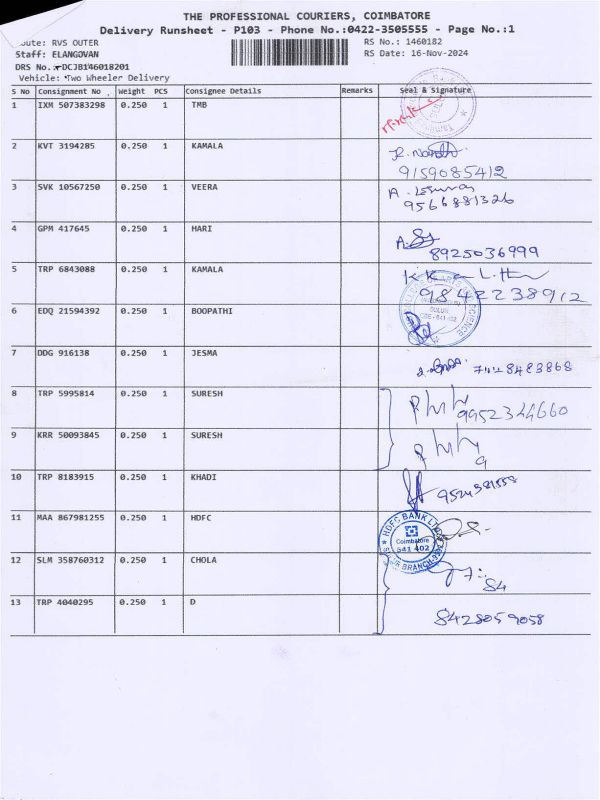 THE PROFESSIONAL COURIERS, COIMBATORE
Delivery Runsheet - P103 - Phone No.:0422-3505555 - Page No.:1
oute: RVS OUTER
RS No.: 1460182
Staff: ELANGOVAN
RS Date: 16-Nov-2024
DRS No.:DCJB146018201
Vehicle: Two Wheeler Delivery
S No Consignment No Weight PCS Consignee Details Remarks Seal & Signature
1 IXM 507383298 0.250 1 TMB
2 KVT 3194285 0.250 1 KAMALA
9159085412
3 SVK 10567250 0.250 1 VEERA
9566881326
4 GPM 417645 0.250 1 HARI
8925036999
5 TRP 6843088 0.250 1 KAMALA
9842238912
6 EDQ 21594392 0.250 1 BOOPATHI
7 DDG 916138 0.250 1 JESMA
8 TRP 5995814 0.250 1 SURESH
9952344660
9 KRR 50093845 0.250 1 SURESH
10 TRP 8183915 0.250 1 KHADI
9524381558
11 MAA 867981255 0.250 1 HDFC
HDFC BANK
Coimbatore
641 402
BRANCH
12 SLM 358760312 0.250 1 CHOLA
84
13 TRP 4040295 0.250 1 D
8428059058